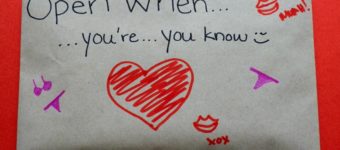 Open When...
...you're...you know ☺
MWAH!
xox